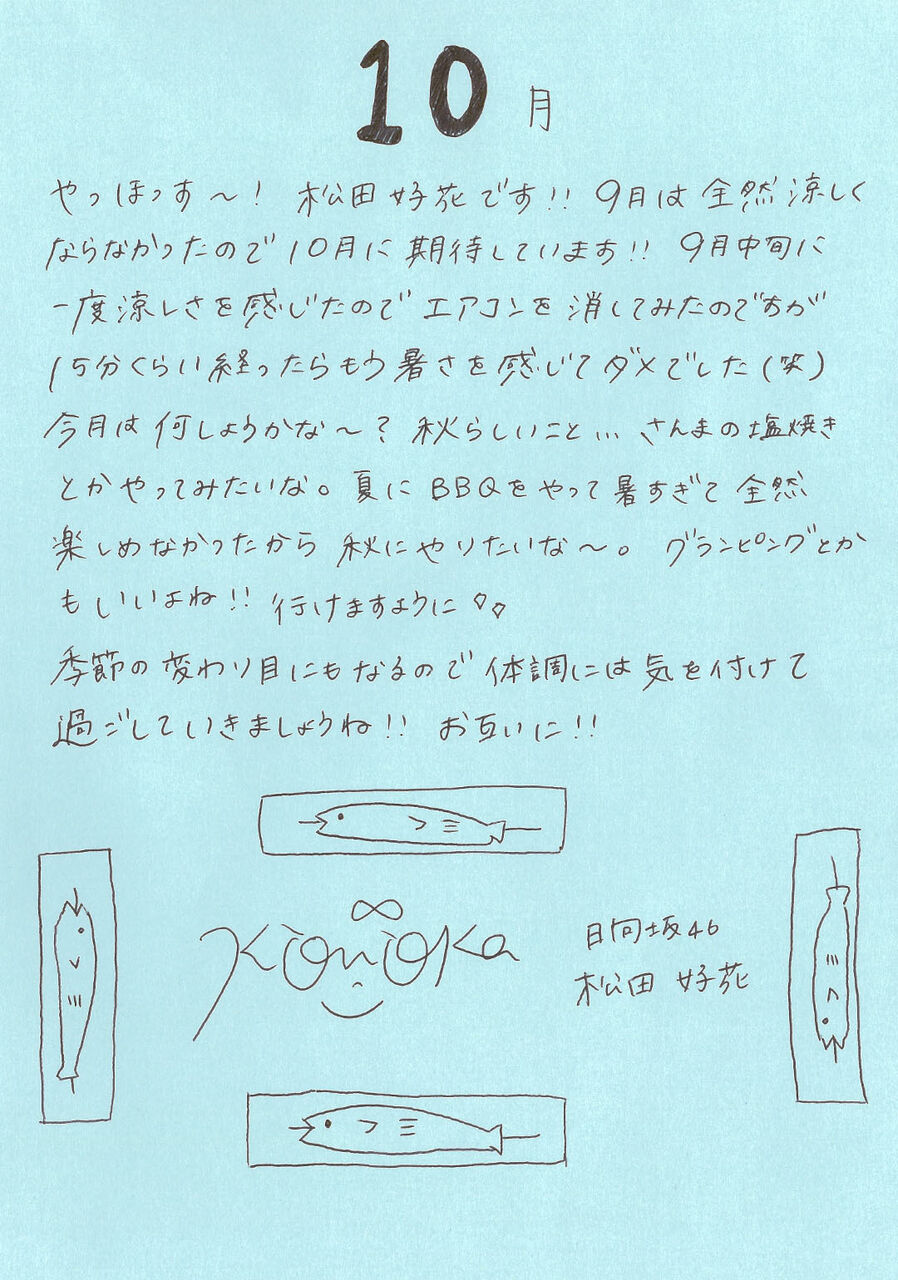 10月
やっほっす〜! 松田好花です!! 9月は全然涼しく
ならなかったので10月に期待しています!! 9月中旬に
一度涼しさを感じたのでエアコンを消してみたのですが
15分くらい経ったらもう暑さを感じてダメでした(笑)
今月は何しようかな〜? 秋らしいこと... さんまの塩焼き
とかやってみたいな。夏にBBQをやって暑すぎて全然
楽しめなかったから秋にやりたいな〜。グランピングとか
もいいよね!! 行けますように
季節の変わり目にもなるので体調には気を付けて
過ごしていきましょうね!! お互いに!!
Konoka
日向坂46
松田 好花